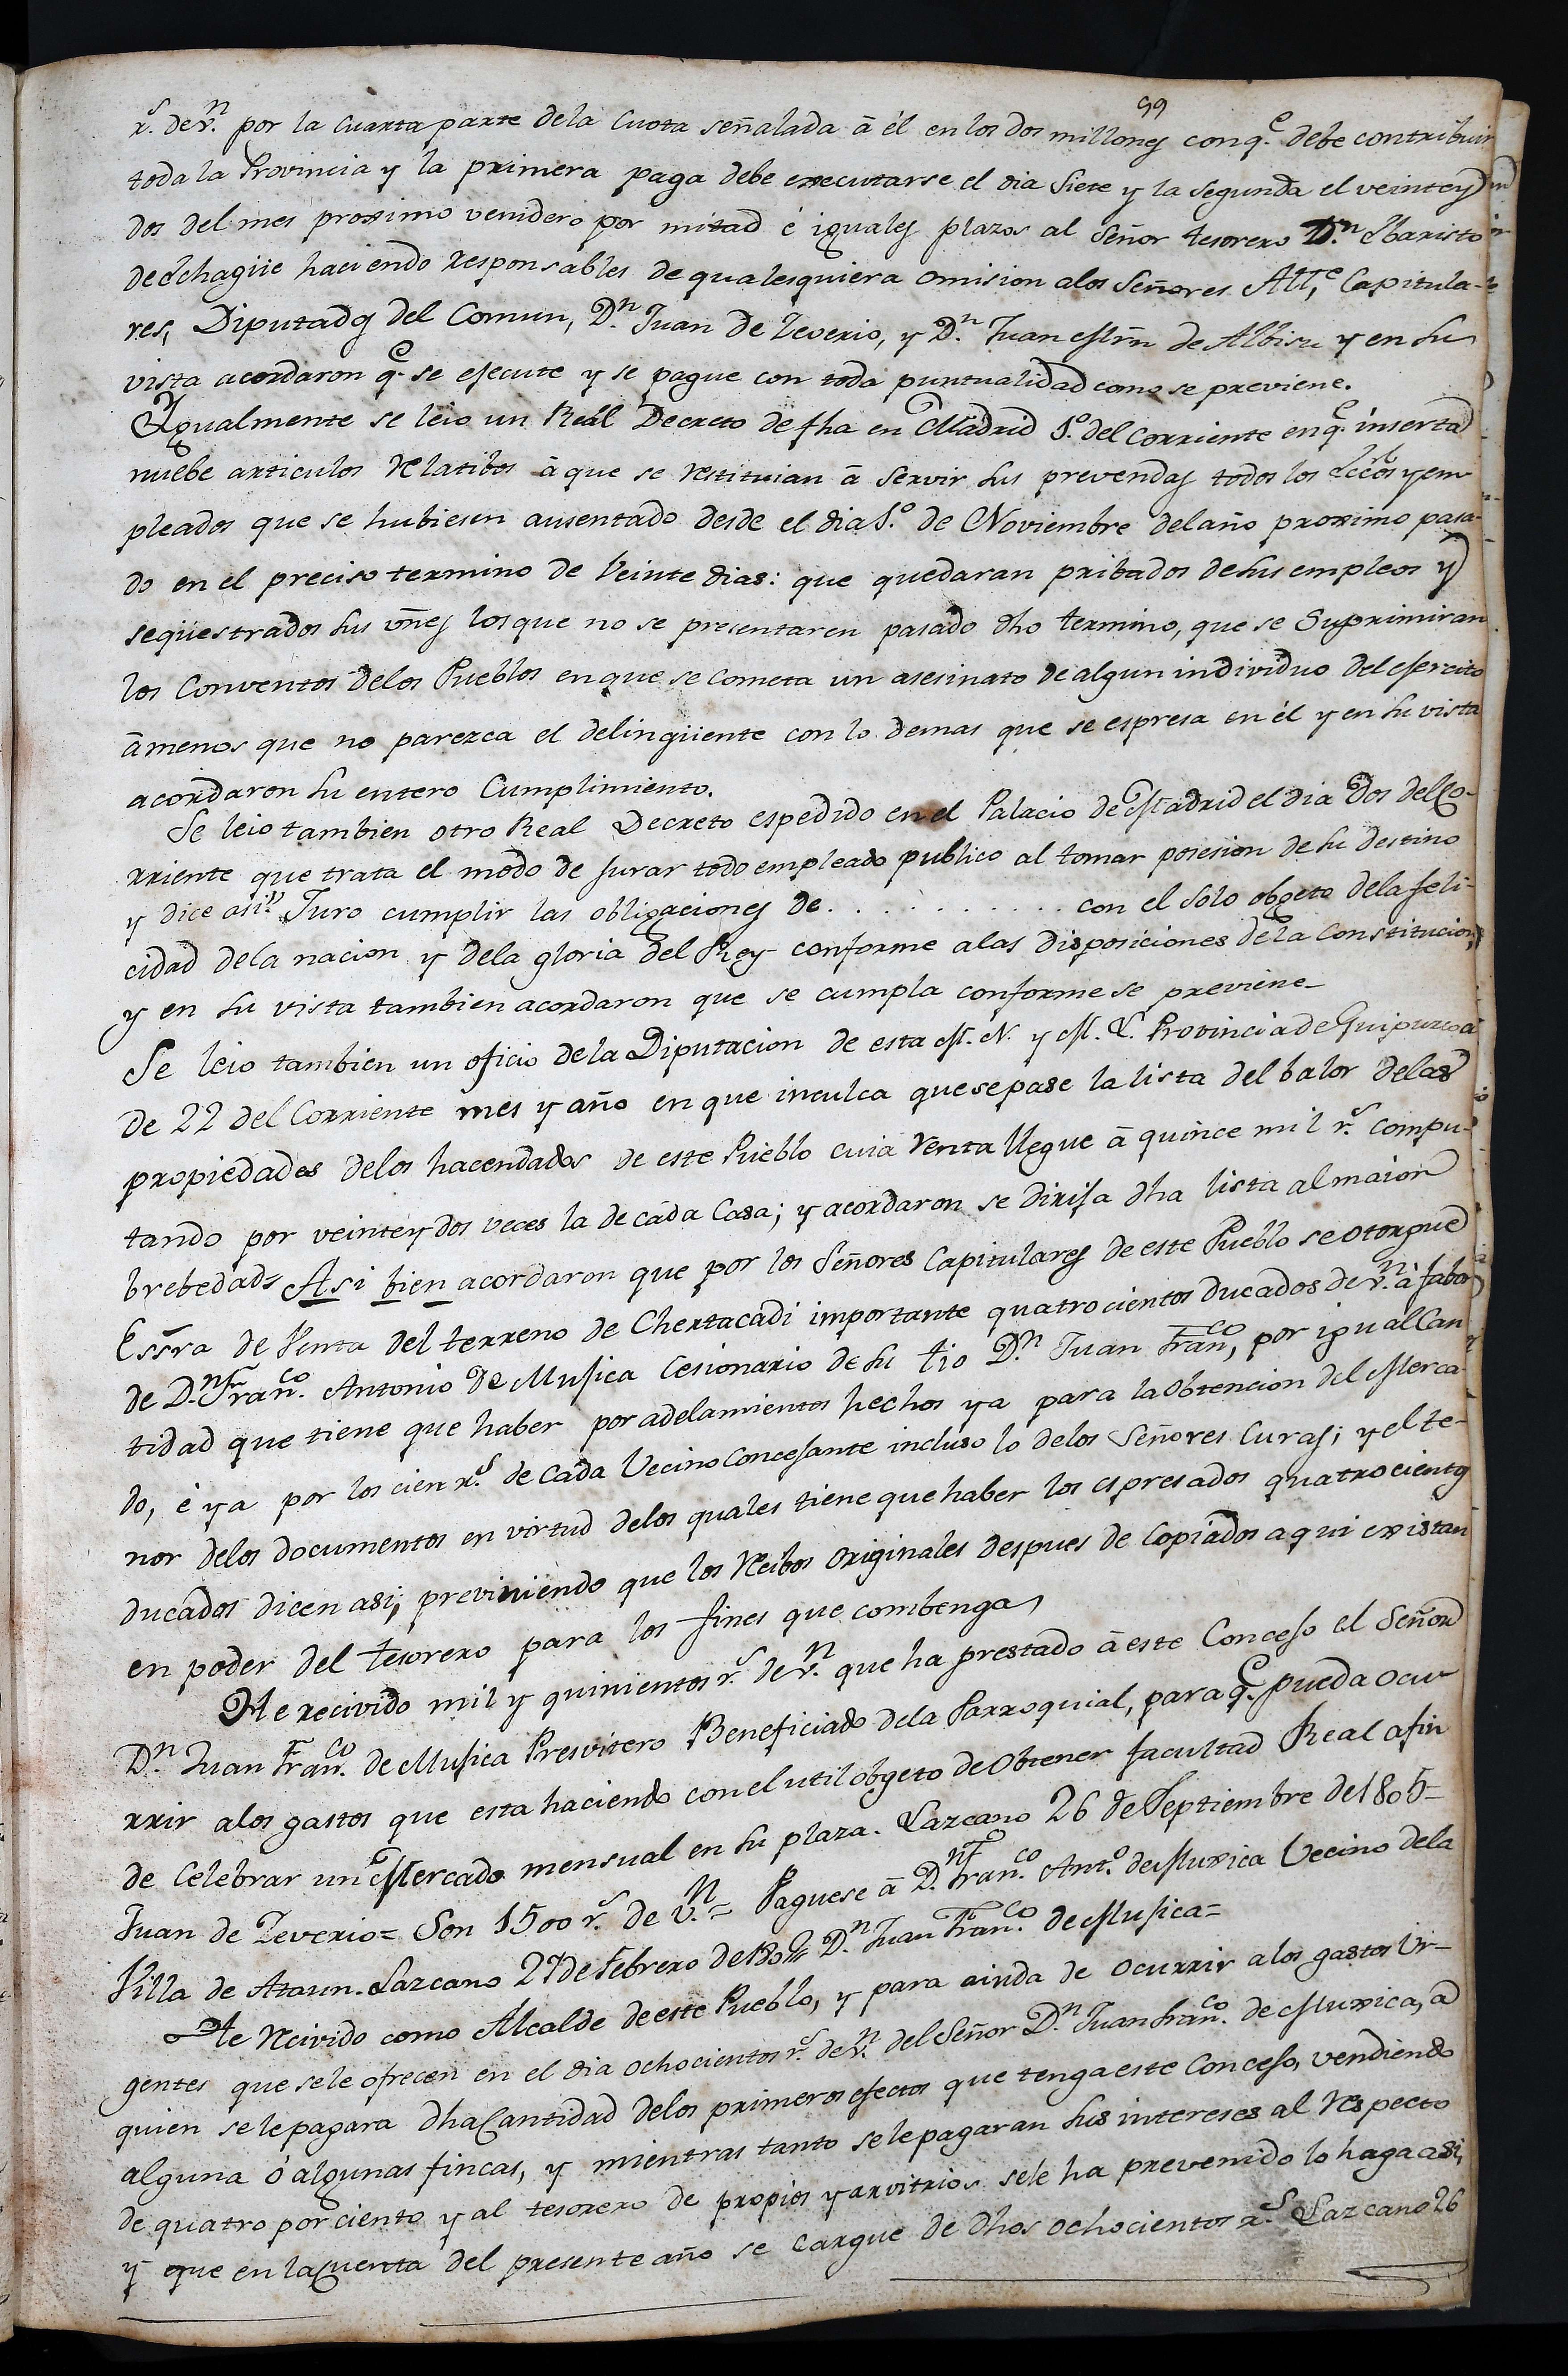 99
r.s de v.n por la cuarta parte dela Cuota señalada â él en los dos millones con q.e debe contribuir
toda la Provincia y la primera paga debe executarse el dia Siete y la segunda el veintey
dos del mes proximo venidero por mitad é iguales plazos al Señor tesorero D.n Ebaristo
de Echagüe haciendo responsables de qualesquiera omision alos Señores Alt.e Capitula-
res, Diputados del Comun, D.n Juan de Zeverio, y D.n Juan Mrn de Albisu y en su
vista acordaron q.e se ejecute y se pague con toda puntualidad como se previene.
Igualmente se leio un Real Decreto de fha en Madrid 1.o del corriente en q.e inserta
nuebe articulos relatibos â que se restituian â servir sus prevendas todos los Eccos y em
pleados que se hubiesen ausentado desde el dia 1.o de Noviembre del año proximo pasa-
do en el preciso termino de Veinte dias: que quedaran pribados de sus empleos y
seqüestrados sus vnes los que no se presentaren pasado dho termino, que se Suprimiran
los Conventos delos Pueblos en que se cometa un asesinato de algun individuo del ejercito
âmenos que no parezca el delinqüente con lo demas que se espresa en él y en su vista
acordaron su entero Cumplimiento.
Se leio tambien otro Real Decreto espedido en el Palacio de Madrid el dia Dos del Co-
rriente que trata el modo de jurar todo empleado publico al tomar posesion de su destino
y dice asi: Juro cumplir las obligaciones de . . . . . . . . . . . con el solo obgeto dela feli-
cidad dela nacion y dela gloria del Rey conforme alas disposiciones dela Constitucion,
y en su vista tambien acordaron que se cumpla conforme se previene-
Se leio tambien un oficio dela Diputacion de esta M. N. y M. L. Provincia de Guipuzcoa
de 22 del Corriente mes y año en que inculca que se pase la lista del balor delas
propiedades delos hacendados de este Pueblo cuia renta llegue â quince mil r.s compu-
tando por veintey dos veces la de cada Casa; y acordaron se dirija dha lista al maior
brebedad= Asi bien acordaron que por los Señores Capitulares de este Pueblo se otorgue
Essra de Venta del terreno de Chertacadi importante quatrocientos ducados de v.n â fabor
de D.n Fran.co Antonio de Mujica Cesionario de su tio D.n Juan Fran,co por igual Can
tidad que tiene que haber por adelamientos hechos ya para la obtencion del Merca-
do, é ya por los cien r.s de cada Vecino Concejante incluso lo delos Señores Curas; y el te-
nor delos documentos en virtud delos quales tiene que haber los espresados quatrocientos
ducados dicen asi; previniendo que los recibos originales despues de Copiados aqui existan
en poder del tesorero para los fines que combenga
He recivido mil y quinientos r.s de v.n que ha prestado â este Concejo el Señor
D.n Juan Fran.co de Mujica Presvitero Beneficiado dela Parroquial, para q.e pueda ocu
rrir alos gastos que esta haciendo con el util obgeto de obtener facultad Real a fin
de Celebrar un Mercado mensual en su plaza. Lazcano 26 de Septiembre de 1805=
Juan de Zeverio= Son 1500 r.s de v.n= Paguese â D.n Fran.co Ant.o de Muxica Vecino dela
Villa de Ataun. Lazcano 27 de Febrero de 180 D.n Juan Fran.co de Mujica=
He recivido como Alcalde de este Pueblo, y para ainda de ocurrir alos gastos Ur-
gentes que se le ofrecen en el dia ochocientos r.s de v.n del Señor D.n Juan Fran.co de Muxica, a
quien se le pagara dha Cantidad delos primeros efectos que tenga este Concejo, vendiendo
alguna ó algunas fincas, y mientras tanto se le pagaran sus intereses al respecto
de quatro por ciento y al tesorero de propios y arvitrios sele ha prevenido lo haga asi,
y que en la Cuenta del presente año se cargue de dhos ochocientos r.s Lazcano 26